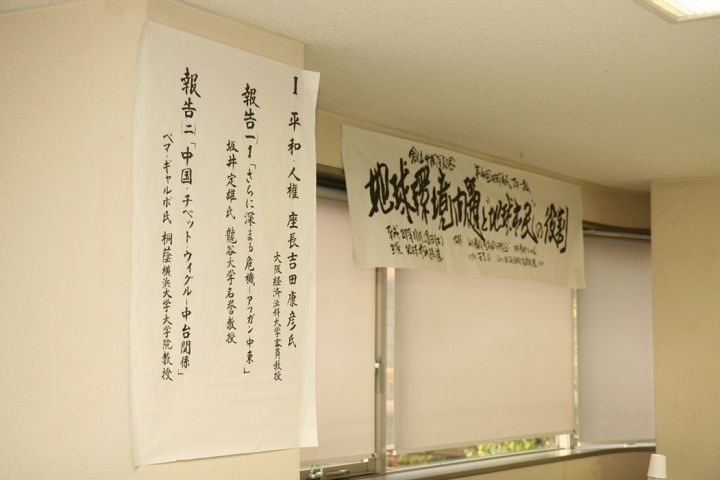 I 平和・人権 座長 吉田康彦氏
大阪経済法科大学客員教授
報告(一)「さらに深まる危機ーアフガン中東」
坂井定雄氏 龍谷大学名誉教授
報告(二)「中国・チベット・ウイグルー中台関係」
ペマ・ギャルポ氏 桐蔭横浜大学大学院教授
地球環境問題と「地球市民」の役割